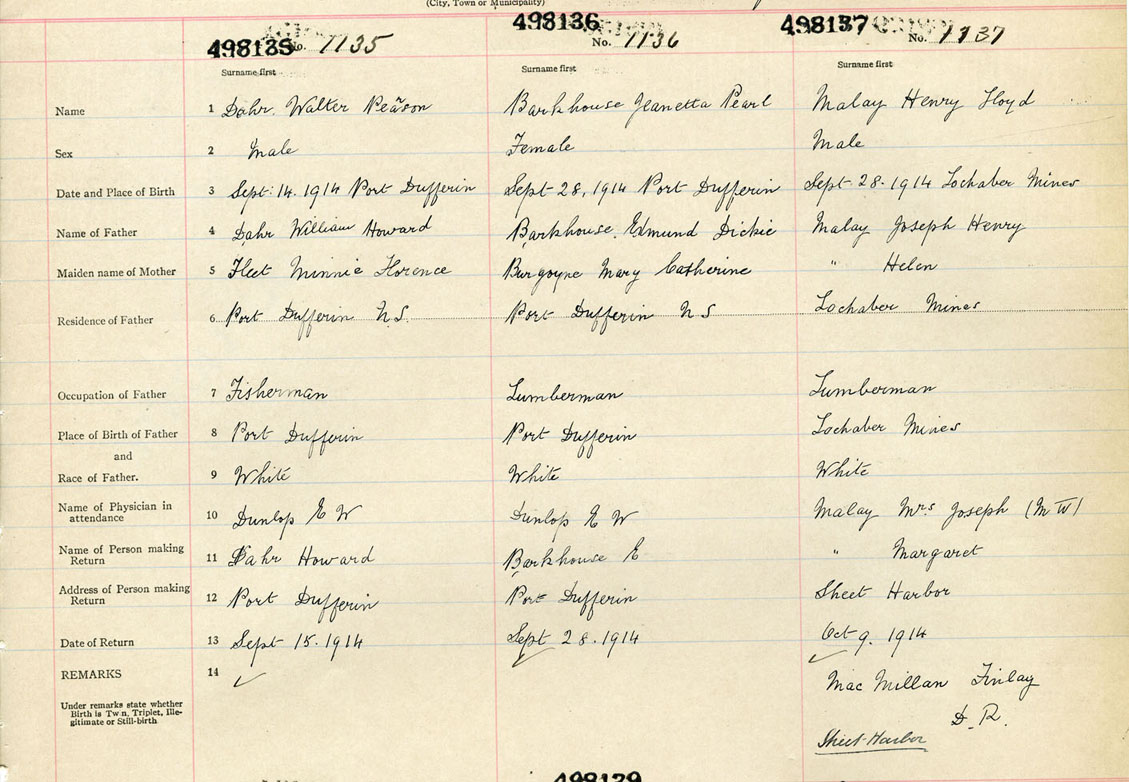 (City, Town or Municipality)
498135 No. 1135
498136 No. 1136
498137 No. 1137
Surname first Surname first Surname first
Name 1 Dahr. Walter Pearson Barkhouse Jeanetta Pearl Malay Henry Lloyd
Sex 2 Male Female Male
Date and Place of Birth 3 Sept. 14. 1914 Port Dufferin Sept 28, 1914 Port Dufferin Sept 28. 1914 Lochaber Mines
Name of Father 4 Dahr William Howard Barkhouse Edmund Dickie Malay Joseph Henry
Maiden name of Mother 5 Fleet Minnie Florence Burgoyne Mary Catherine " Helen
Residence of Father 6 Port Dufferin N.S. Port Dufferin N S Lochaber Mines
Occupation of Father 7 Fisherman Lumberman Lumberman
Place of Birth of Father 8 Port Dufferin Port Dufferin Lochaber Mines
and
Race of Father. 9 White White White
Name of Physician in
attendance 10 Dunlop E W Dunlop E W Malay Mrs Joseph (M W)
Name of Person making
Return 11 Dahr Howard Barkhouse E " Margaret
Address of Person making
Return 12 Port Dufferin Port Dufferin Sheet Harbor
Date of Return 13 Sept 15. 1914 Sept 28. 1914 Oct 9. 1914
REMARKS 14 Mac Millan Finlay
Under remarks state whether
Birth is Twin, Triplet, Ille-
gitimate or Still-birth
D. R.
Sheet Harbor
498139